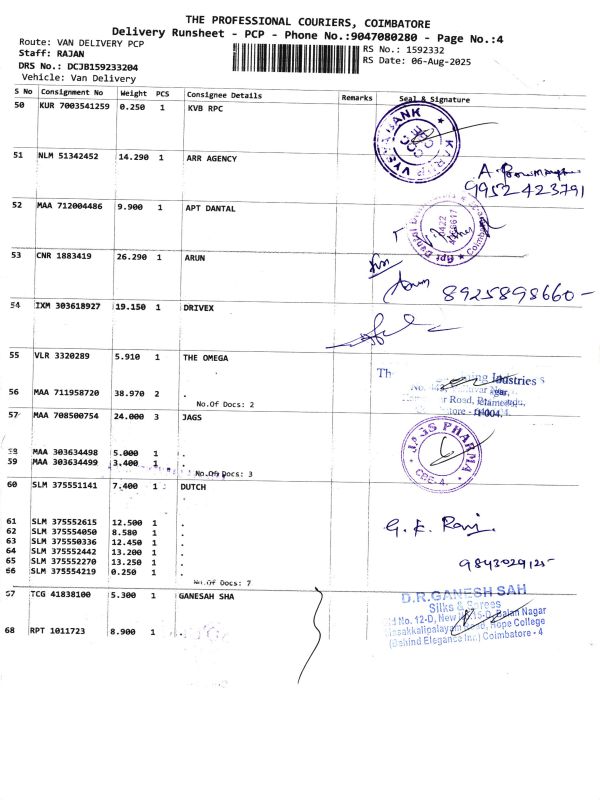 THE PROFESSIONAL COURIERS, COIMBATORE
Delivery Runsheet - PCP - Phone No.:9047080280 - Page No.:4
Route: VAN DELIVERY PCP
RS No.: 1592332
Staff: RAJAN
RS Date: 06-Aug-2025
DRS No.: DCJB159233204
Vehicle: Van Delivery
S No Consignment No Weight PCS Consignee Details Remarks Seal & Signature
50 KUR 7003541259 0.250 1 KVB RPC
BANK
51 NLM 51342452 14.290 1 ARR AGENCY
9952423791
52 MAA 712004486 9.900 1 APT DANTAL
Apt Dantal
0422
Coimbatore
53 CNR 1883419 26.290 1 ARUN
Arun 8925898660-
54 IXM 303618927 19.150 1 DRIVEX
55 VLR 3320289 5.910 1 THE OMEGA
Industries
56 MAA 711958720 38.970 2 .
No.Of Docs: 2
57 MAA 708500754 24.000 3 JAGS
JAGS PHARMA
CBE-4
58 MAA 303634498 5.000 1 .
59 MAA 303634499 3.400 1 .
No.Of Docs: 3
60 SLM 375551141 7.400 1 DUTCH
61 SLM 375552615 12.500 1 .
62 SLM 375554050 8.580 1 .
63 SLM 375550336 12.450 1 .
64 SLM 375552442 13.200 1 .
65 SLM 375552270 13.250 1 .
66 SLM 375554219 0.250 1 .
G. K. Ravi
9843029125-
No.Of Docs: 7
67 TCG 41838100 5.300 1 GANESAH SHA
D.R.GANESH SAH
Silks & Sarees
No. 12-D, New No. 15-D, Balan Nagar
Masakkalipalayam Road, Hope College
(Behind Elegance Inn.) Coimbatore - 4
68 RPT 1011723 8.900 1 .